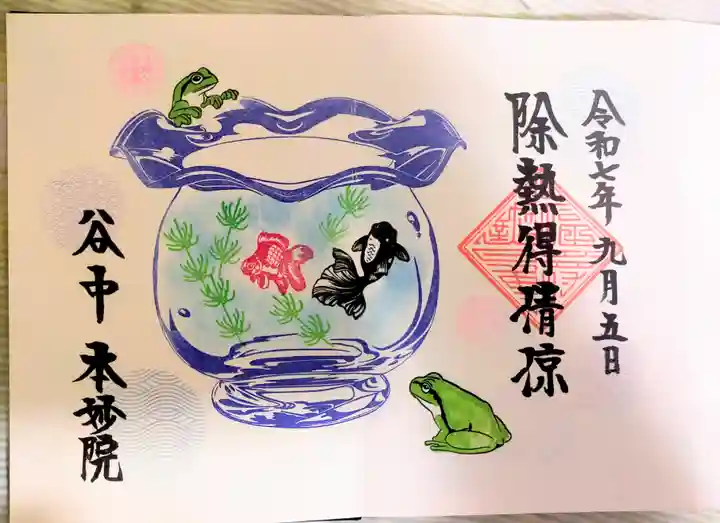 令和七年九月五日
除熱得清涼
谷中本妙院